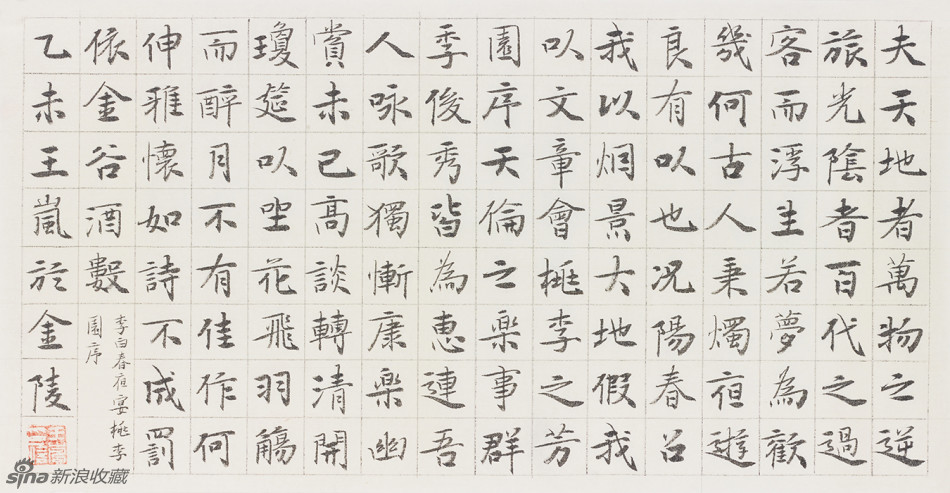 夫天地者萬物之逆
旅光陰者百代之過
客而浮生若夢為歡
幾何古人秉燭夜遊
良有以也況陽春召
我以烟景大地假我
以文章會桃李之芳
園序天倫之樂事群
季俊秀皆為惠連吾
人咏歌獨慚康樂幽
賞未已高談轉清開
瓊筵以坐花飛羽觴
而醉月不有佳作何
伸雅懷如詩不成罰
依金谷酒數
李白春夜宴桃李
園序
乙未王嵐於金陵
sina新浪收藏